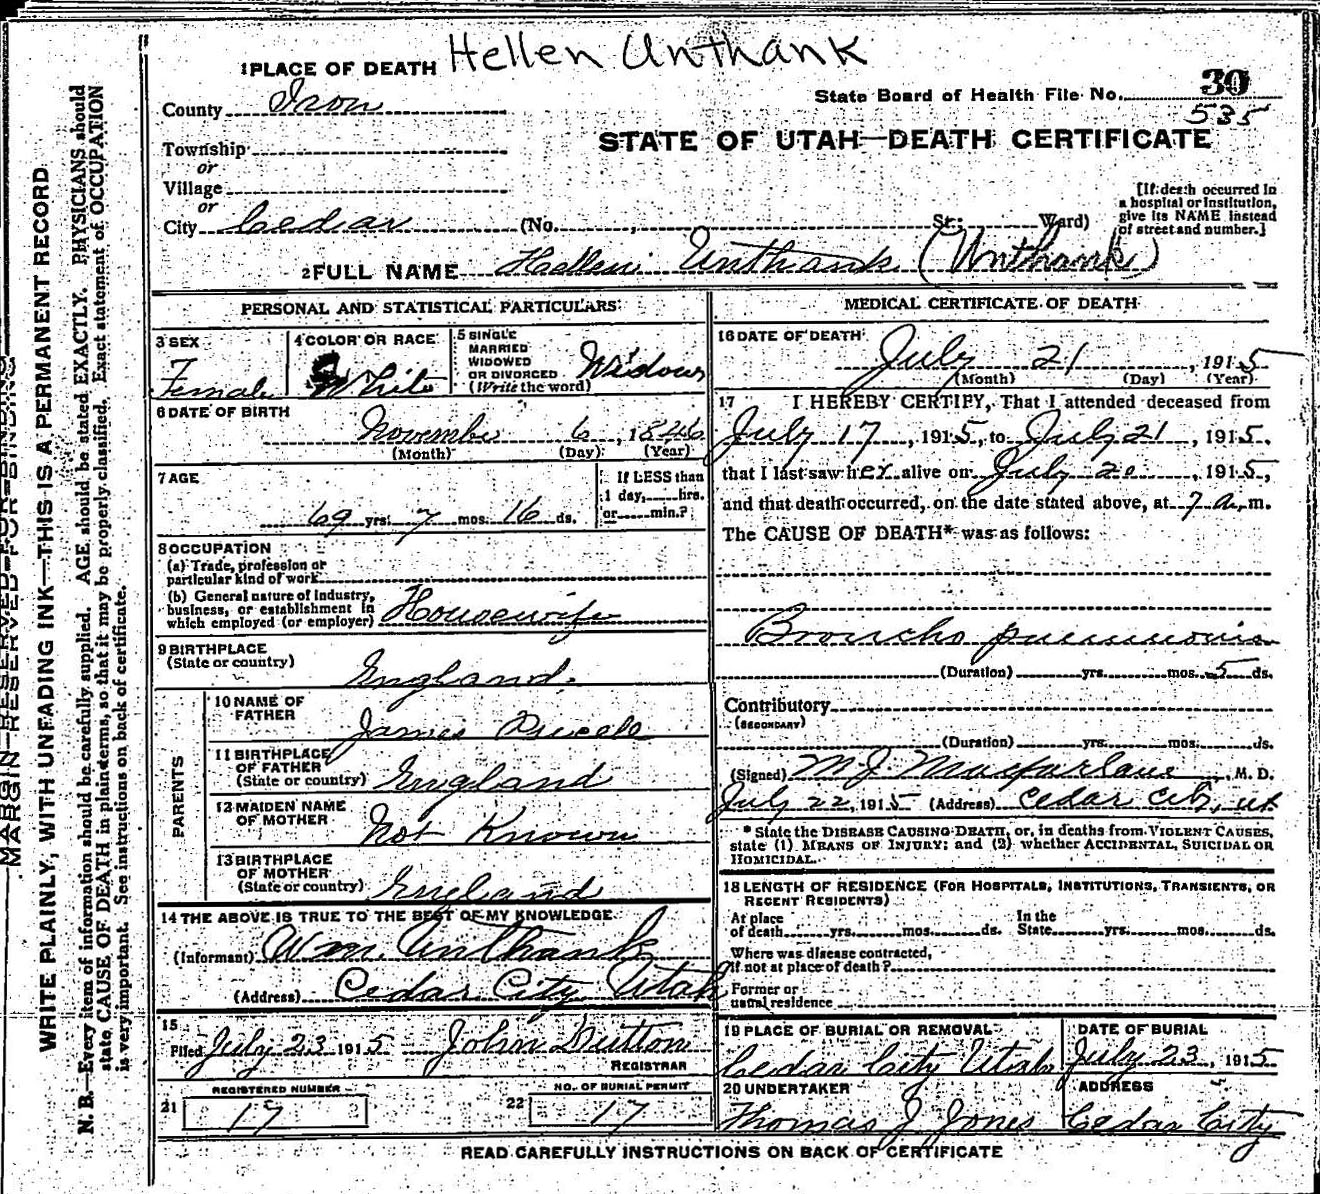 Hellen Unthank
1 PLACE OF DEATH
County Iron
State Board of Health File No. 30
535
STATE OF UTAH—DEATH CERTIFICATE
Township
or
Village
or
City Cedar (No. , St: Ward)
[If death occurred in
a hospital or institution,
give its NAME instead
of street and number.]
2 FULL NAME Hellen Unthank (Unthank)
PERSONAL AND STATISTICAL PARTICULARS
3 SEX
Female
4 COLOR OR RACE
White
5 SINGLE
MARRIED
WIDOWED
OR DIVORCED
(Write the word)
Widow
6 DATE OF BIRTH
November 6, 1846
(Month) (Day) (Year)
7 AGE
69 yrs. 7 mos. 16 ds.
If LESS than
1 day, hrs.
or min.?
8 OCCUPATION
(a) Trade, profession or
particular kind of work
(b) General nature of industry,
business, or establishment in
which employed (or employer) Housewife
9 BIRTHPLACE
(State or country)
England.
PARENTS
10 NAME OF
FATHER
James
11 BIRTHPLACE
OF FATHER
(State or country) England
12 MAIDEN NAME
OF MOTHER
Not Known
13 BIRTHPLACE
OF MOTHER
(State or country) England
14 THE ABOVE IS TRUE TO THE BEST OF MY KNOWLEDGE
(Informant) Wm. Unthank
(Address) Cedar City Utah
15
Filed July 23 1915 John Dutton
REGISTRAR
REGISTERED NUMBER
21 17
NO. OF BURIAL PERMIT
22 17
MEDICAL CERTIFICATE OF DEATH
16 DATE OF DEATH
July 21, 1915
(Month) (Day) (Year)
17 I HEREBY CERTIFY, That I attended deceased from
July 17, 1915, to July 21, 1915.
that I last saw her alive on July 20, 1915,
and that death occurred, on the date stated above, at 7 a.m.
The CAUSE OF DEATH* was as follows:
Broncho pneumonia
(Duration) yrs. mos. 5 ds.
Contributory
(SECONDARY)
(Duration) yrs. mos. ds.
(Signed) M J Macfarlane, M. D.
July 22, 1915 (Address) Cedar City, Ut
* State the DISEASE CAUSING DEATH, or, in deaths from VIOLENT CAUSES,
state (1) MEANS OF INJURY; and (2) whether ACCIDENTAL, SUICIDAL OR
HOMICIDAL.
18 LENGTH OF RESIDENCE (FOR HOSPITALS, INSTITUTIONS, TRANSIENTS, OR
RECENT RESIDENTS)
At place
of death yrs. mos. ds.
In the
State yrs. mos. ds.
Where was disease contracted,
if not at place of death?
Former or
usual residence
19 PLACE OF BURIAL OR REMOVAL
Cedar City Utah
DATE OF BURIAL
July 23, 1915
20 UNDERTAKER
Thomas J Jones
ADDRESS
Cedar City
READ CAREFULLY INSTRUCTIONS ON BACK OF CERTIFICATE
MARGIN RESERVED FOR BINDING
WRITE PLAINLY, WITH UNFADING INK—THIS IS A PERMANENT RECORD
N. B.—Every item of information should be carefully supplied. AGE should be stated EXACTLY. PHYSICIANS should
state CAUSE OF DEATH in plain terms, so that it may be properly classified. Exact statement of OCCUPATION
is very important. See instructions on back of certificate.